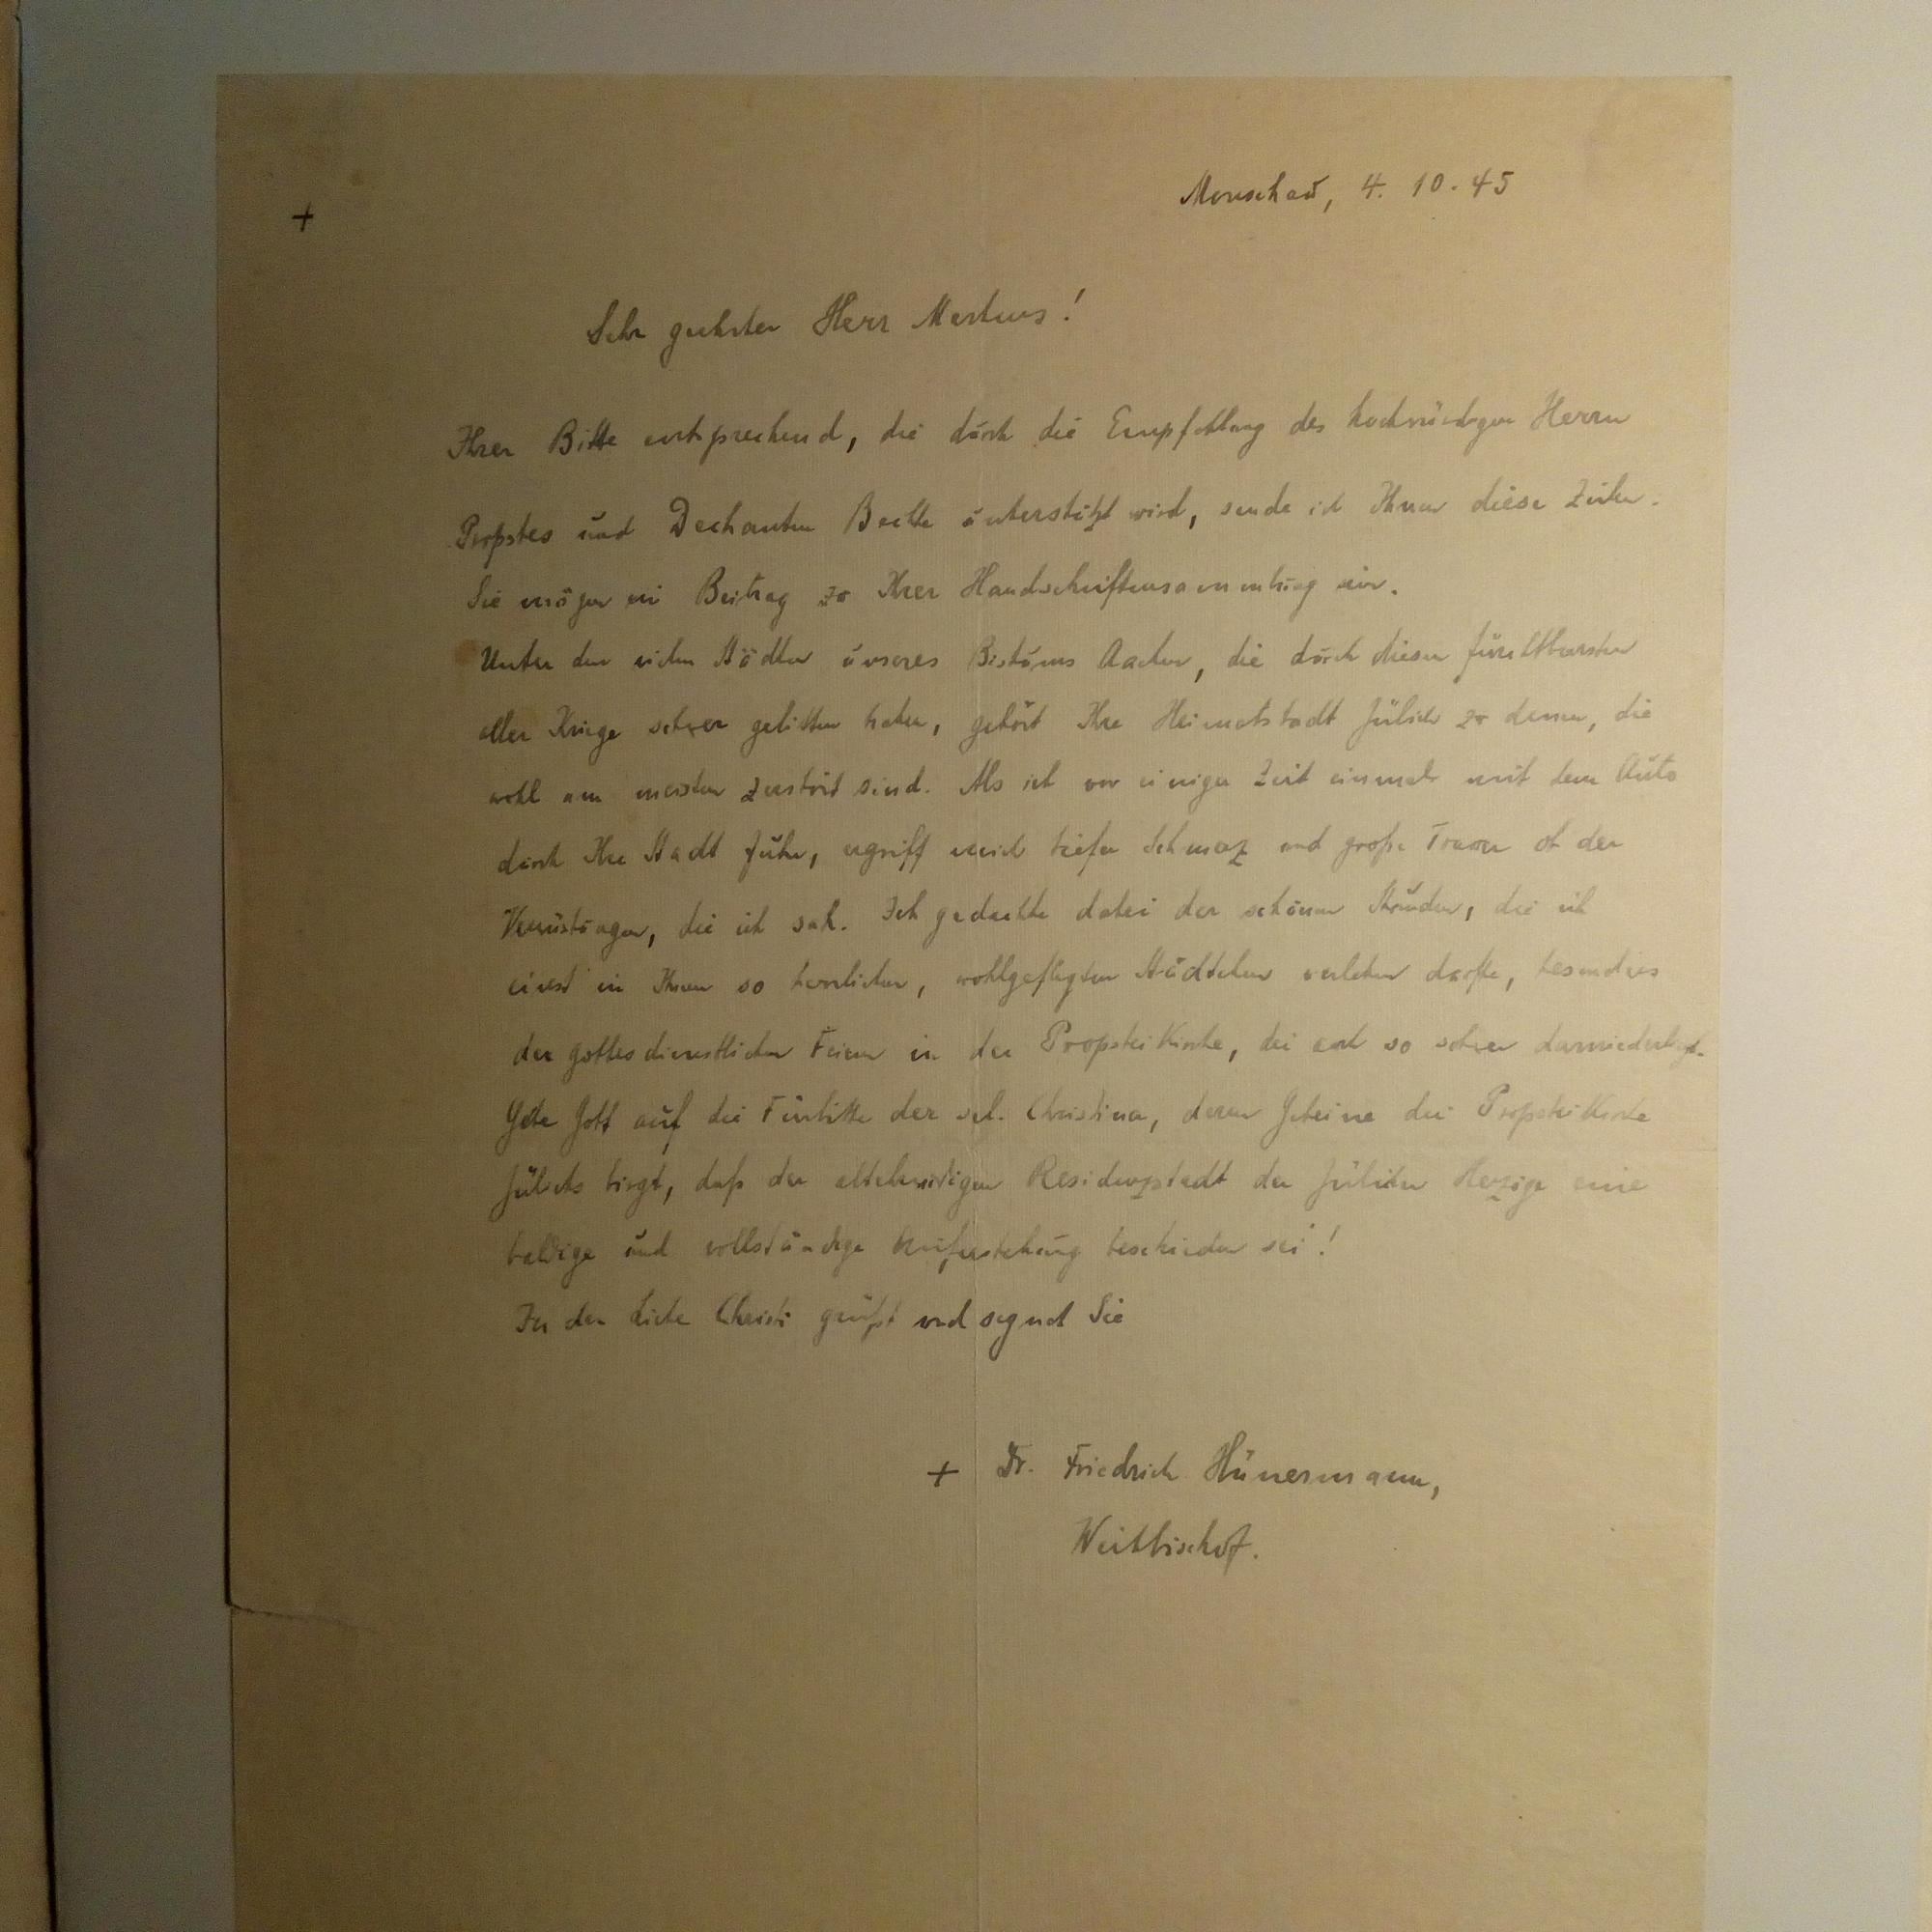 +
Monschau, 4. 10. 45
Sehr geehrter Herr Mertens!
Ihrer Bitte entsprechend, die durch die Empfehlung des hochwürdigen Herrn
Propstes und Dechanten Bechte unterstützt wird, sende ich Ihnen diese Zeilen.
Sie mögen ein Beitrag zu Ihrer Handschriftensammlung sein.
Unter den vielen Städten unseres Bistums Aachen, die durch diesen furchtbarsten
aller Kriege schwer gelitten haben, gehört Ihre Heimatstadt Jülich zu denen, die
wohl am meisten zerstört sind. Als ich vor einiger Zeit einmal mit dem Auto
durch Ihre Stadt fuhr, ergriff mich tiefer Schmerz und große Trauer ob der
Verwüstungen, die ich sah. Ich gedachte dabei der schönen Stunden, die ich
einst in Ihrem so herrlichen, wohlgepflegten Städtchen verleben durfte, besonders
der gottesdienstlichen Feiern in der Propsteikirche, die auch so schwer darniederliegt.
Gebe Gott auf die Fürbitte der sel. Christina, deren Gebeine die Propsteikirche
Jülichs birgt, daß der altehrwürdigen Residenzstadt der Jülicher Herzöge eine
baldige und vollständige Auferstehung beschieden sei!
In der Liebe Christi grüßt und segnet Sie
+ Dr. Friedrich Hünermann,
Weihbischof.